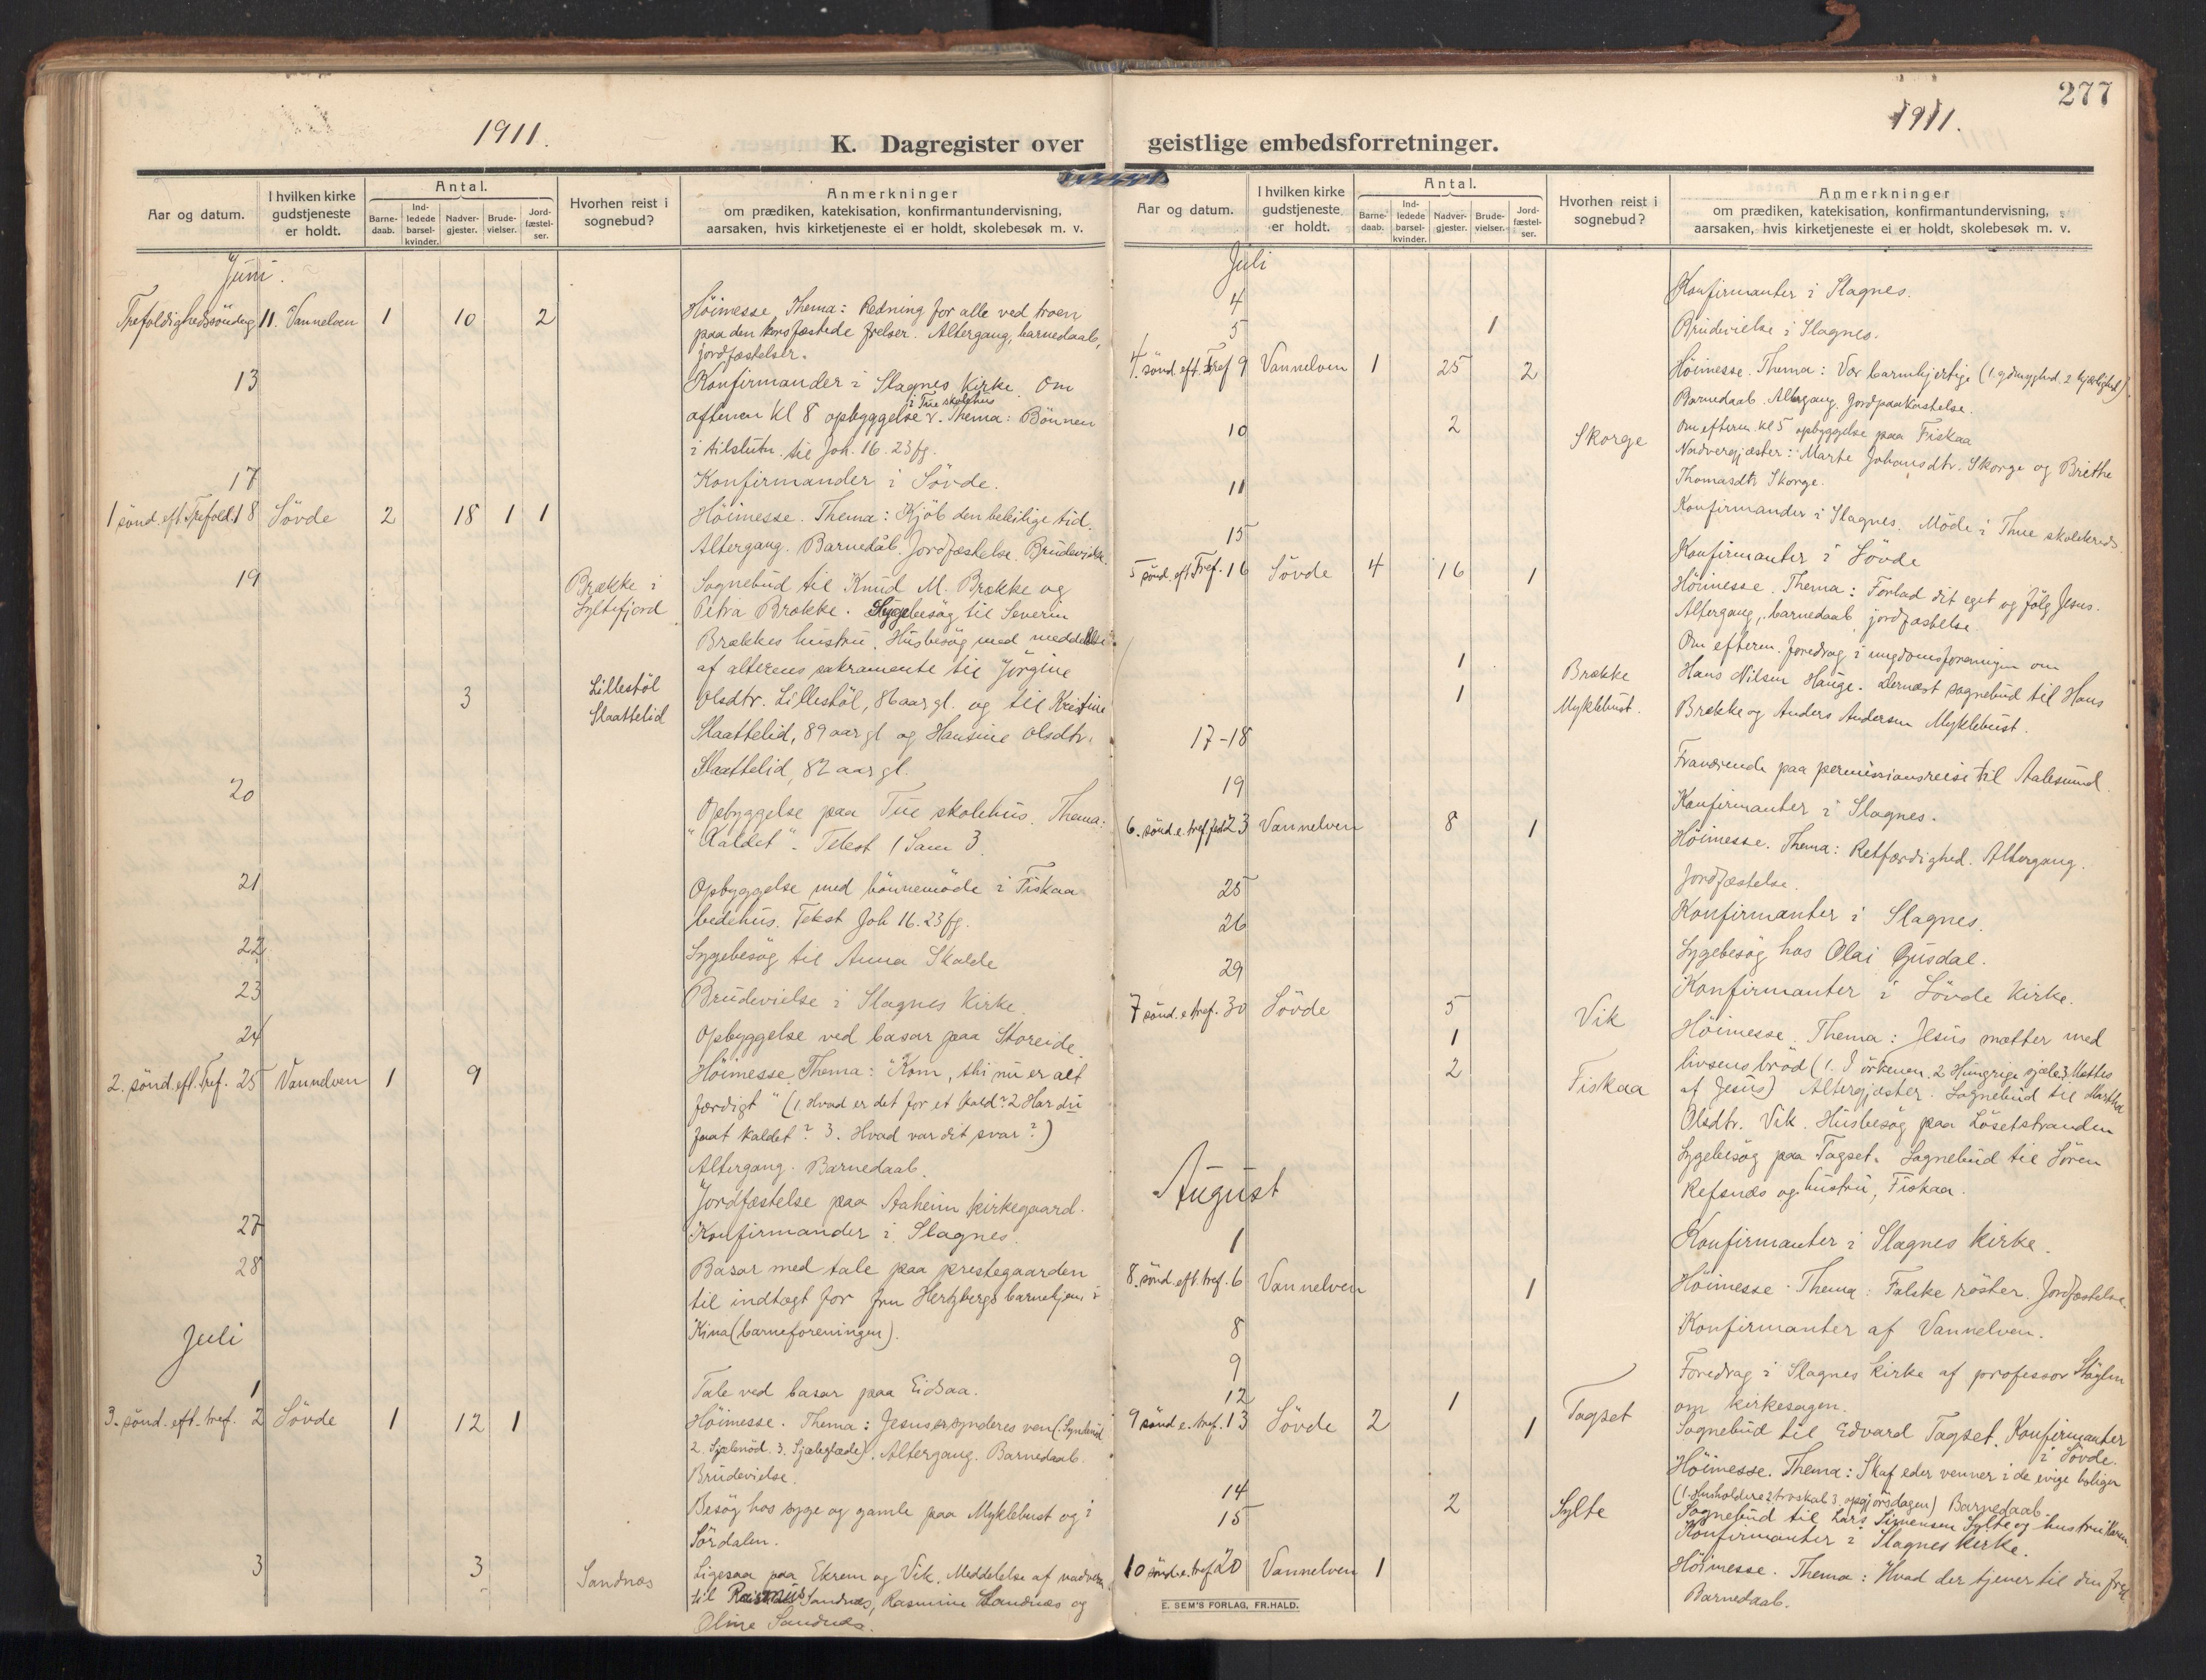 1911.
K. Dagregister over
Aar og datum.
I hvilken kirke gudstjeneste er holdt.
Antal.
Barne-daab.
Ind-ledede barsel-kvinder.
Nadver-gjester.
Brude-vielser.
Jord-fæstel-ser.
Hvorhen reist i sognebud?
Anmerkninger
om prædiken, katekisation, konfirmantundervisning,
aarsaken, hvis kirketjeneste ei er holdt, skolebesøk m. v.
Juni.
Trefoldighedssöndag 11. Vannelven 1 10 2 Höimesse. Thema: Redning for alle ved troen
paa den korsfæstede frelser. Altergang, barnedaab,
jordfæstelser.
13 Konfirmander i Slagnes Kirke. Om
i Tue skolehus
aftenen Kl 8 opbyggelse v. Thema: Bönnen
i tilslutn. til Joh. 16. 23 fg.
17 Konfirmander i Sövde.
1 sönd. eft. Trefold. 18 Sövde 2 18 1 1 Höimesse. Thema: Kjöb den beleilige tid.
Altergang. Barnedåb. Jordfæstelse. Brudevielse.
19 Brække i Sognebud til Knud M. Brække og
Syltefjord Petra Brække. Sygebesög til Severin
Brækkes hustru. Husbesög med meddelelse
af alterens sakramente til Jörgine
3 Lillestöl Olsdtr. Lillestöl, 86 aar gl. og til Kristine
Slaattelid Slaattelid, 89 aar gl og Hansine Olsdtr.
Slaattelid, 82 aar gl.
20 Opbyggelse paa Tue skolehus. Thema:
"Kaldet". Tekst 1 Sam 3.
21 Opbyggelse med bönnemöde i Fiskaa
bedehus. Tekst Joh 16. 23 fg.
22 Sygebesög til Anna Skolde
23 Brudevielse i Slagnes Kirke.
24 Opbyggelse ved basar paa Storeide.
2. sönd. eft. Tref. 25 Vannelven 1 9 Höimesse. Thema: "Kom, thi nu er alt
færdigt" (1 Hvad er det for et kald? 2 Har du
faat kaldet? 3. Hvad var dit svar?)
Altergang. Barnedaab.
Jordfæstelse paa Aaheim kirkegaard.
27 Konfirmander i Slagnes.
28 Basar med tale paa prestegaarden
til indtægt for fru Hertzbergs barnehjem i
Kina (barneforeningen).
Juli
1 Tale ved basar paa Eidsaa.
3. sönd. eft. tref. 2 Sövde 1 12 1 Höimesse. Thema: Jesus er synderes ven (
2. Sjælenöd. 3. Sjæleglæde). Altergang. Barnedaab.
Brudevielse.
Besög hos syge og gamle paa Myklebust og i
Sördalen.
3 3 Sandnæs Ligesaa paa Ekrem og Vik. Meddelelse af nadveren
til Rasmus Sandnæs, Rasmine Sandnæs og
Oline Sandnæs.
277
1911.
geistlige embedsforretninger.
Aar og datum.
I hvilken kirke gudstjeneste er holdt.
Antal.
Barne-daab.
Ind-ledede barsel-kvinder.
Nadver-gjester.
Brude-vielser.
Jord-fæstel-ser.
Hvorhen reist i sognebud?
Anmerkninger
om prædiken, katekisation, konfirmantundervisning,
aarsaken, hvis kirketjeneste ei er holdt, skolebesøk m. v.
Juli
4 Konfirmanter i Slagnes.
5 1 Brudevielse i Slagnes.
4. sönd. eft. Tref 9 Vannelven 1 25 2 Höimesse. Thema: Vær barmhjertige (1. ydmyghed. 2 kjærlighed).
Barnedaab. Altergang. Jordpaakastelse.
Om efterm. kl 5 opbyggelse paa Fiskaa
10 2 Skorge Nadvergjæster: Marte Johansdtr. Skorge og Brithe
Thomasdtr Skorge.
11 Konfirmander i Slagnes. Möde i Thue skolekreds.
15 Konfirmanter i Sövde
5 sönd. eft Tref. 16 Sövde 4 16 1 Höimesse. Thema: Forlad dit eget og fölg Jesus.
Altergang, barnedaab, jordfæstelse.
Om efterm. foredrag i ungdomsforeningen om
1 Brække Hans Nilsen Hauge. Dernæst sognebud til Hans
1 Myklebust. Brække og Anders Andersen Myklebust.
17-18 Fraværende paa permissionsreise til Aalesund.
19 Konfirmanter i Slagnes.
6. sönd. e. tref. 23 Vannelven 8 1 Höimesse. Thema: Retfærdighed. Altergang.
Jordfæstelse.
25 Konfirmanter i Slagnes.
26 Sygebesög hos Olai Gusdal.
29 Konfirmanter i Sövde Kirke.
7 sönd. e. tref. 30 Sövde 5 Höimesse. Thema: Jesus mætter med
1 Vik livsens bröd (1. I örkenen. 2 Hungrige sjæle 3. Mættes
2 Fiskaa af Jesus) Altergjæster. Sognebud til Martha
Olsdtr. Vik. Husbesög paa Lösetstranden
Sygebesög paa Tagset. Sognebud til Sören
Refsnæs og hustru, Fiskaa.
August
1 Konfirmanter i Slagnes kirke.
8. sönd. eft. tref. 6 Vannelven 1 Höimesse. Thema: Falske röster. Jordfæstelse.
8 Konfirmanter af Vannelven.
9 Foredrag i Slagnes kirke af professor
om kirkesagen.
12 1 Tagset Sognebud til Edvard Tagset. Konfirmanter
i Sövde.
9 sönd e. tref. 13 Sövde 2 1 Höimesse. Thema: Skaf eder venner i de evige boliger
(1. Husholdere 2 troskab 3. opgjörsdagen) Barnedaab.
14 2 Sylte Sognebud til Lars Simensen Sylte og hustru Karen.
15 Konfirmanter i Slagnes Kirke.
10 sönd. e. tref 20 Vannelven 1 Höimesse. Thema: Hvad der tjener til din fred
Barnedaab.
E. SEM'S FORLAG, FR.HALD.